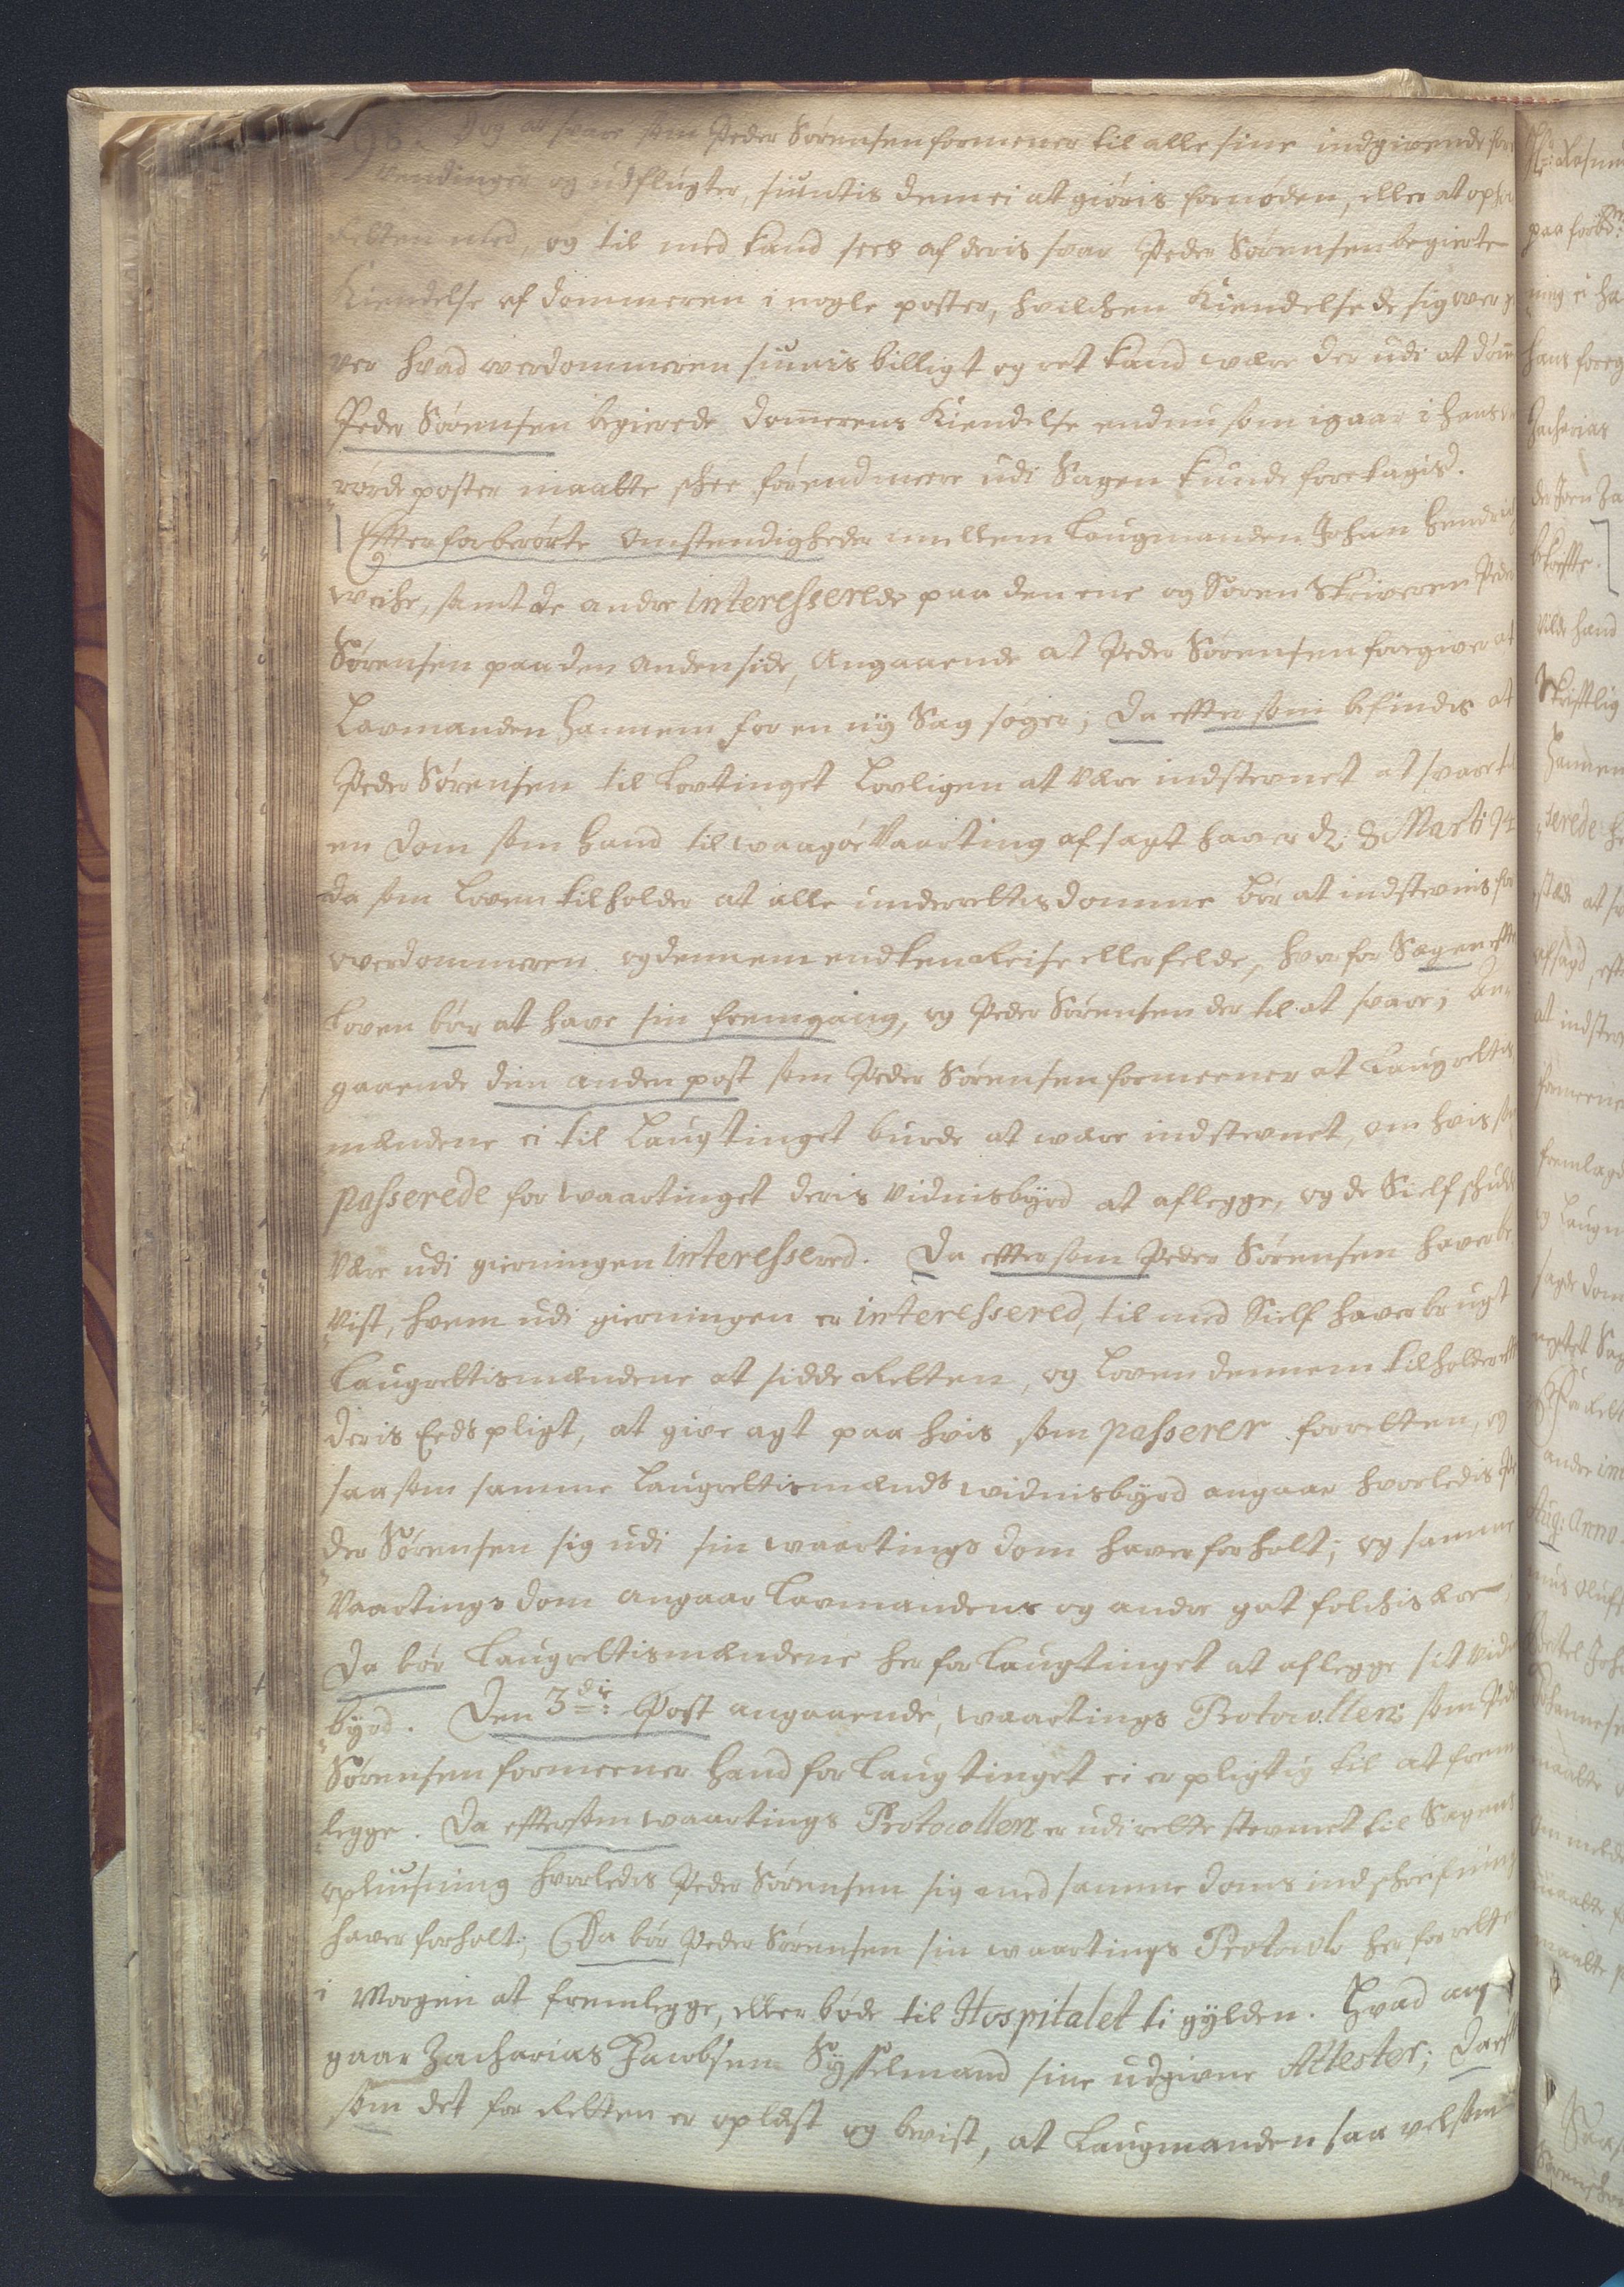 at svare som Peder Sørensen formener til alle sine indgivende for
vendinger og udflugter, siuntis dem ei at giøris fornøden, eller at opho
Retten med, og til med kand sees af deris svar Peder Sørensen begierte
Kiendelse af dommeren i nogle poster, hvilchen Kiendelse de sig over gi
ver hvad overdommeren siunis billigt og ret kand være der udi at døme
Peder Sørensen begierede domerens Kiendelse endnu som igaar i hans
rørde poster maatte skee førend mere udi Sagen kunde foretagis.
Efter forberørte omstendigheder mellem Laugmanden Johan Hendrich
Weihe, samt de andre interesserede paa den ene og Soren Skriveren Peder
Sørensen paa den anden side, Angaaende at Peder Sørensen foregiver at
Lavmanden hannem for en ny Sag søger; da effter som befindis at
Peder Sørensen til Lovtinget Lovligen at være indstevnet at svare til
en Dom som hand til waagøe Vaarting afsagt haver d: 8 Marti 94
da som Loven tilholder at alle underrettis domme bør at indstevnis for
overdommeren og dennem endten Reise eller felde, hvorfor Sagen effter
Loven bør at have sin fremgang, og Peder Sørensen der til at svare; An-
gaaende den anden post som Peder Sørensen formeener at Laugrettis
mændene ei til Laugtinget burde at være indstevnet, om hvis som
passerede for waartinget deris vidnisbyrd at aflegge, og de Sielf schulde
være udi gierningen interessered. Da effter som Peder Sørensen haver be
vist, hvem udi gierningen er interessered, til med Sielf haver brugt
Laugrettismændene at sidde Retten, og Loven dennem tilholder effter
deris Eeds pligt, at give agt paa hvis som passerer for retten, og
saasom samme Laugrettismænds vidnisbyrd angaar hvorledis Pe
der Sørensen sig udi sin waartings dom haver forholt; og samme
Vaartings dom angaar Lavmandens og andre got folchis ære
Da bør Laugrettismændene her for Laugtinget at aflegge sit vidnis
byrd. Den 3die Post angaaende, waartings Protocollen; som Peder
Sørensen formeener hand for Laugtinget ei er pligtig til at frem
legge. Da eftersom waartings Protocollen er udi rette stevnet til Sagens
opliusning hvorledis Peder Sørensen sig med samme doms indschrifning
haver forholt; Da bør Peder Sørensen sin waartings Protocol her for retten
i Morgen at fremlegge, eller bøde til Hospitalet ti gylden. Hvad an-
gaar Zacharias Jacobsen Sysselmand sine udgivne Attester; da eft
som det for Retten er oplæst og bevist, at Laugmanden saa velsom